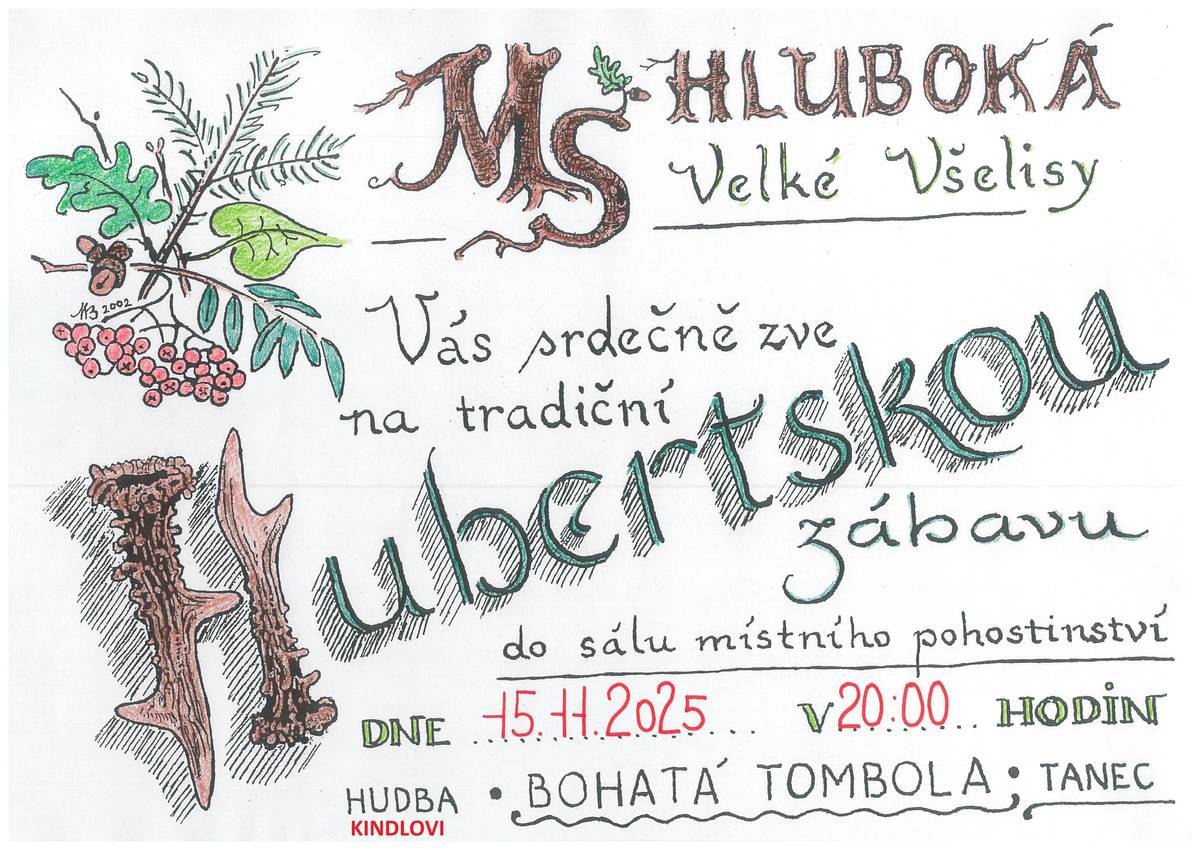 MS HLUBOKÁ
Velké Všelisy
Vás srdečně zve
na tradiční
Hubertskou
zábavu
do sálu místního pohostinství
DNE 15.11.2025... V 20:00.. HODIN
HUDBA • BOHATÁ TOMBOLA • TANEC
KINDLOVI
2002